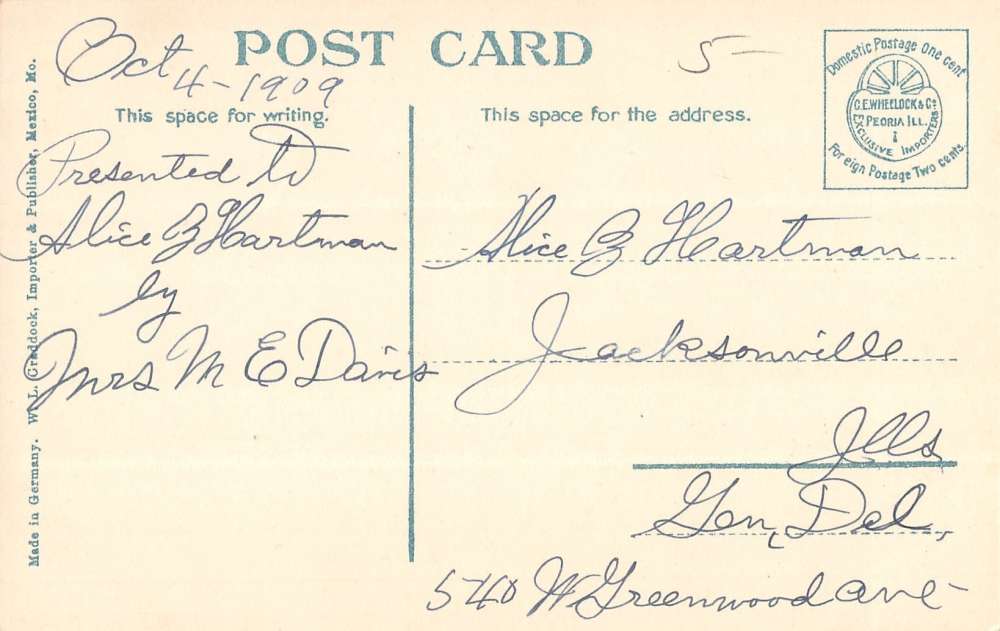 POST CARD
Oct 4-1909
5-
This space for writing.
This space for the address.
Domestic Postage One cent
C.E. WHEELOCK & Co
PEORIA ILL.
EXCLUSIVE IMPORTERS
Foreign Postage Two cents.
Presented to
Alice B Hartman
by
Mrs M E Davis
Alice B Hartman
Jacksonville
Ills
Gen, Del,
540 W Greenwood ave-
Made in Germany. W. L. Craddock, Importer & Publisher, Mexico, Mo.